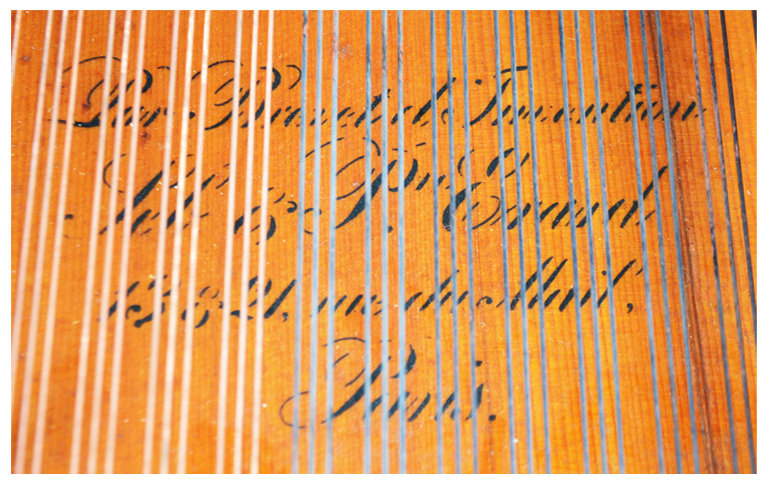 Par Brevet d'Invention
Seb.ⁿ & P.re Erard
13 & 21, rue du Mail,
Paris.